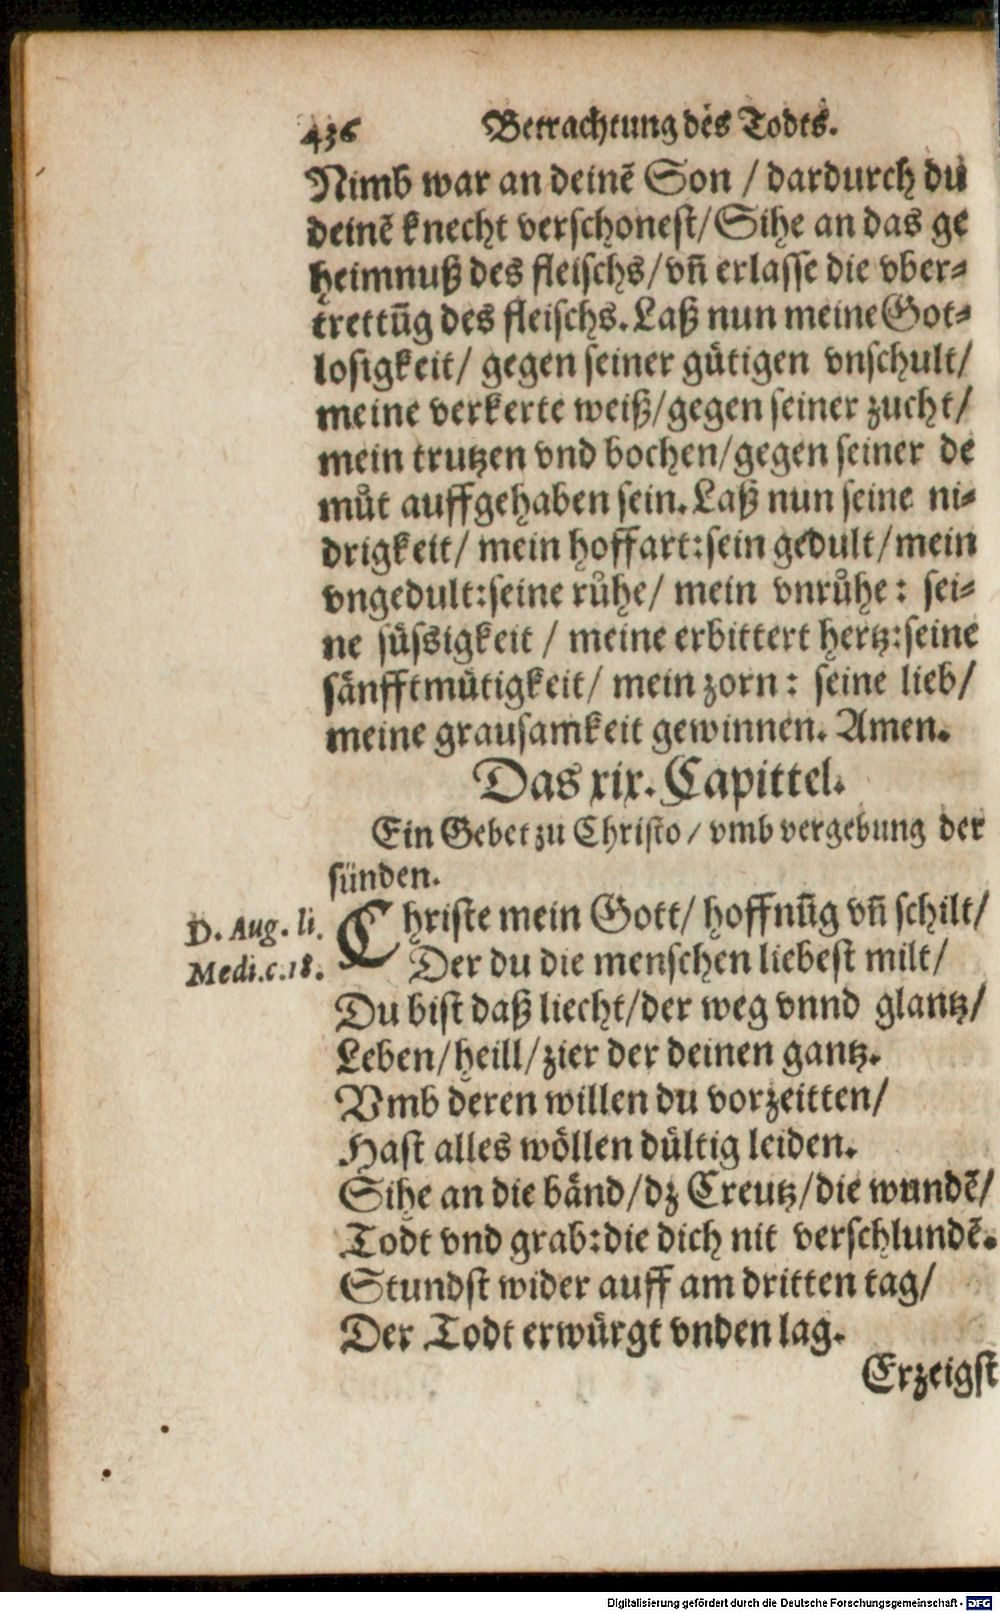 436 Betrachtung des Todts.
Nimb war an deinẽ Son / dardurch du
deinẽ knecht verschonest/Sihe an das ge
heimnuß des fleischs/vñ erlasse die vber-
trettũg des fleischs. Laß nun meine Got-
losigkeit/ gegen seiner gütigen vnschult/
meine verkerte weiß/gegen seiner zucht/
mein trutzen vnd bochen/gegen seiner de
můt auffgehaben sein. Laß nun seine ni-
drigkeit/ mein hoffart: sein gedult/mein
vngedult: seine růhe/ mein vnrůhe: sei-
ne süssigkeit / meine erbittert hertz: seine
sänfftmütigkeit/ mein zorn: seine lieb/
meine grausamkeit gewinnen. Amen.
Das xix. Capittel.
Ein Gebet zu Christo / vmb vergebung der
sünden.
D. Aug. li.
Medi.c.18.
Christe mein Gott/ hoffnũg vñ schilt/
Der du die menschen liebest milt/
Du bist daß liecht/der weg vnnd glantz/
Leben/heill/zier der deinen gantz.
Vmb deren willen du vorzeitten/
Hast alles wöllen dültig leiden.
Sihe an die bänd/dz Creutz/die wundẽ/
Todt vnd grab: die dich nit verschlundẽ.
Stundst wider auff am dritten tag/
Der Todt erwürgt vnden lag.
Erzeigst
Digitalisierung gefördert durch die Deutsche Forschungsgemeinschaft - DFG